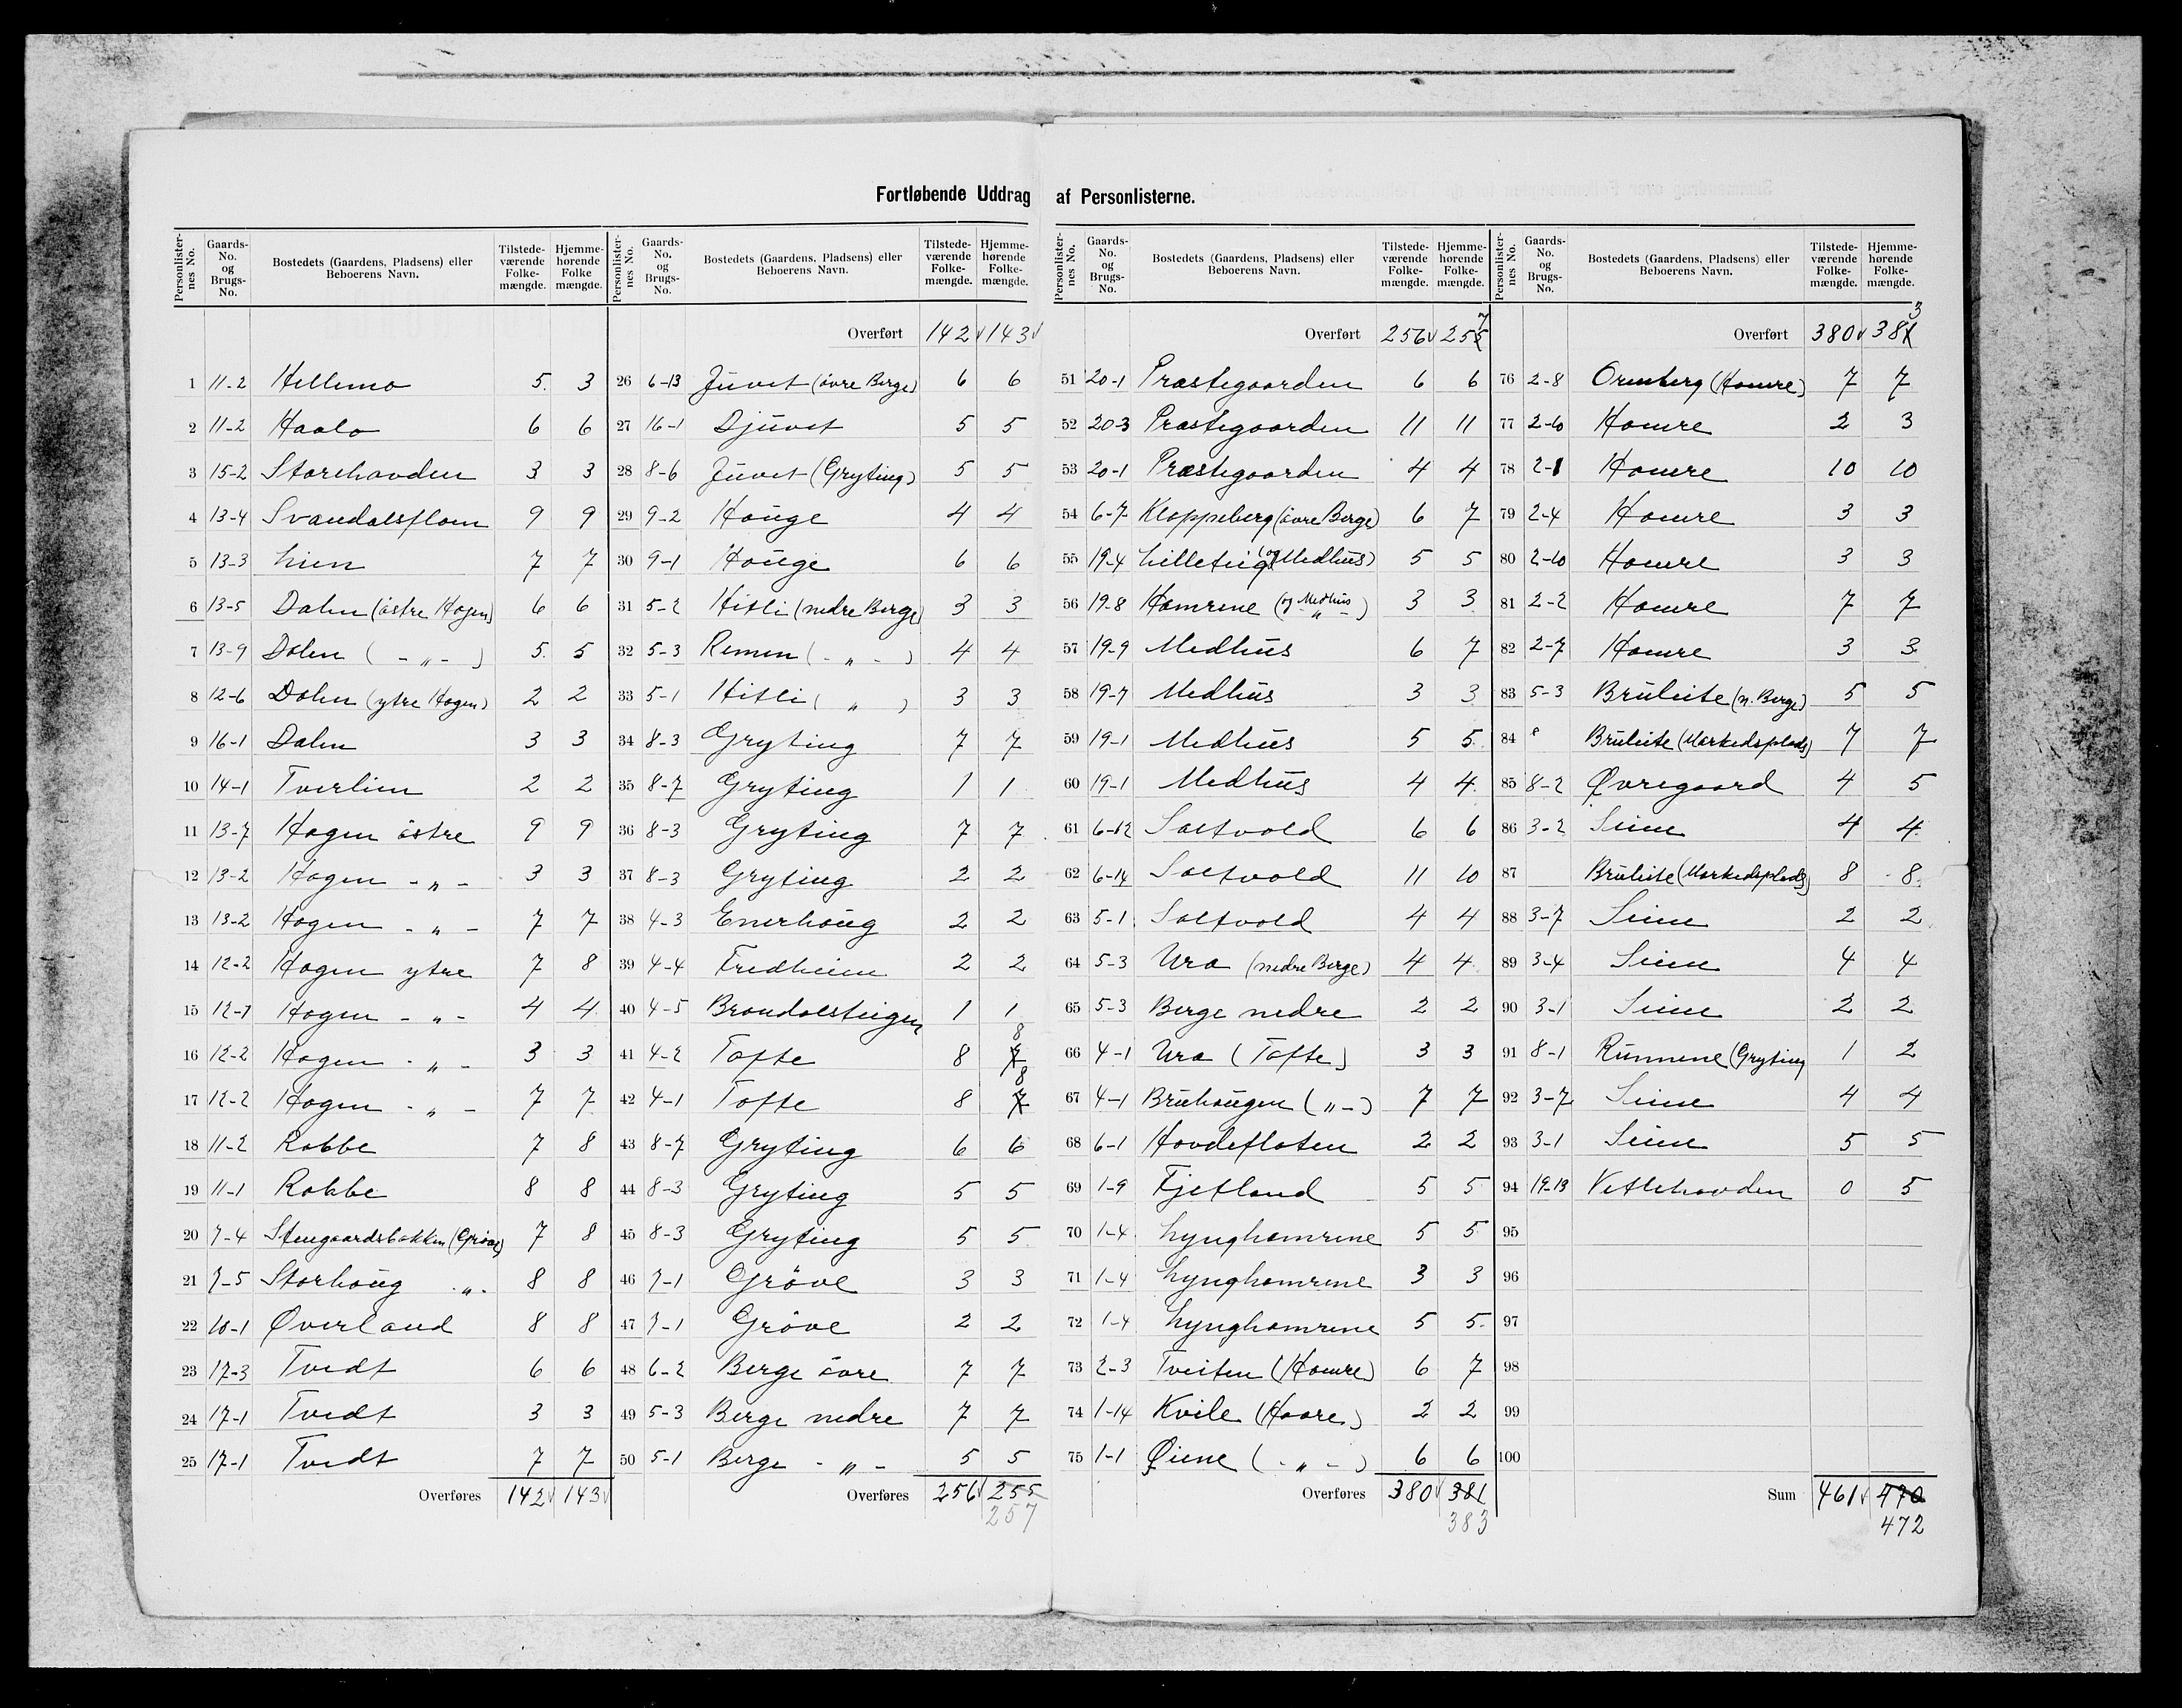 Fortløbende Uddrag af Personlisterne.
Personlisternes No. Gaards-No. og Brugs-No. Bostedets (Gaardens, Pladsens) eller Beboerens Navn. Tilstedeværende Folkemængde. Hjemmehørende Folkemængde.
1 11-2 Hellemo 5 3
2 11-2 Haalo 6 6
3 15-2 Storehovden 3 3
4 13-4 Svandalsflom 9 9
5 13-3 Lien 7 7
6 13-5 Dalen (östre Hagen) 6 6
7 13-9 Dalen ( - „ - ) 5 5
8 12-6 Dalen (ytre Hagen) 2 2
9 16-1 Dalen 3 3
10 14-1 Tverlien 2 2
11 13-7 Hagen östre 9 9
12 13-2 Hagen - „ - 3 3
13 13-2 Hagen - „ - 7 7
14 12-2 Hagen ytre 7 8
15 12-1 Hagen - „ - 4 4
16 12-2 Hagen - „ - 3 3
17 12-2 Hagen - „ - 7 7
18 11-2 Rabbe 7 8
19 11-1 Rabbe 8 8
20 7-4 Stengaardsbakken (Gröve) 7 8
21 7-5 Storhoug - „ - 8 8
22 10-1 Øverland 8 8
23 17-3 Tvedt 6 6
24 17-1 Tvedt 3 3
25 17-1 Tvedt 7 7
Overføres 142 143
Personlisternes No. Gaards-No. og Brugs-No. Bostedets (Gaardens, Pladsens) eller Beboerens Navn. Tilstedeværende Folkemængde. Hjemmehørende Folkemængde.
Overført 142 143
26 6-13 Juvet (övre Berge) 6 6
27 16-1 Djuvet 5 5
28 8-6 Juvet (Gryting) 5 5
29 9-2 Houge 4 4
30 9-1 Houge 6 6
31 5-2 Hitli (nedre Berge) 3 3
32 5-3 Remen ( - „ - ) 4 4
33 5-1 Hitli ( „ ) 3 3
34 8-3 Gryting 7 7
35 8-7 Gryting 1 1
36 8-3 Gryting 7 7
37 8-3 Gryting 2 2
38 4-3 Enerhoug 2 2
39 4-4 Fredheim 2 2
40 4-5 Brandalsteigen 1 1
41 4-2 Tofte 8 7 8
42 4-1 Tofte 8 7 8
43 8-7 Gryting 6 6
44 8-3 Gryting 5 5
45 8-3 Gryting 5 5
46 7-1 Gröve 3 3
47 7-1 Gröve 2 2
48 6-2 Berge övre 7 7
49 5-3 Berge nedre 7 7
50 5-1 Berge - „ - 5 5
Overføres 256 255
257
Personlisternes No. Gaards-No. og Brugs-No. Bostedets (Gaardens, Pladsens) eller Beboerens Navn. Tilstedeværende Folkemængde. Hjemmehørende Folkemængde.
Overført 256 255 7
51 20-1 Præstegaarden 6 6
52 20-3 Præstegaarden 11 11
53 20-1 Præstegaarden 4 4
54 6-7 Kloppeberg (övre Berge) 6 7
55 19-4 Lilleteig (og Medhus) 5 5
56 19-8 Hamrene (og Medhus - „ - ) 3 3
57 19-9 Medhus 6 7
58 19-7 Medhus 3 3
59 19-1 Medhus 5 5
60 19-1 Medhus 4 4
61 6-12 Saltvold 6 6
62 6-14 Saltvold 11 10
63 5-1 Saltvold 4 4
64 5-3 Ura (nedre Berge) 4 4
65 5-3 Berge nedre 2 2
66 4-1 Ura (Tofte) 3 3
67 4-1 Bruhaugen ( „ - ) 7 7
68 6-1 Hovdeflaten 2 2
69 1-9 Fjetland 5 5
70 1-4 Lynghamrene 5 5
71 1-4 Lynghamrene 3 3
72 1-4 Lynghamrene 5 5
73 2-3 Tveiten (Hamre) 6 7
74 1-14 Kvile (Haare) 2 2
75 1-1 Øiene ( - „ - ) 6 6
Overføres 380 381
383
Personlisternes No. Gaards-No. og Brugs-No. Bostedets (Gaardens, Pladsens) eller Beboerens Navn. Tilstedeværende Folkemængde. Hjemmehørende Folkemængde.
Overført 380 381 3
76 2-8 Orenberg (Hamre) 7 7
77 2-10 Hamre 2 3
78 2-1 Hamre 10 10
79 2-4 Hamre 3 3
80 2-10 Hamre 3 3
81 2-2 Hamre 7 7
82 2-7 Hamre 3 3
83 5-3 Bruleite (n. Berge) 5 5
84 Bruleite (Markedsplads) 7 7
85 8-2 Øvregaard 4 5
86 3-2 Seim 4 4
87 Bruleite (Markedsplads) 8 8
88 3-7 Seim 2 2
89 3-4 Seim 4 4
90 3-1 Seim 2 2
91 8-1 Runnene (Gryting 1 2
92 3-7 Seim 4 4
93 3-1 Seim 5 5
94 19-13 Vetlehovden 0 5
95
96
97
98
99
100
Sum 461 470
472